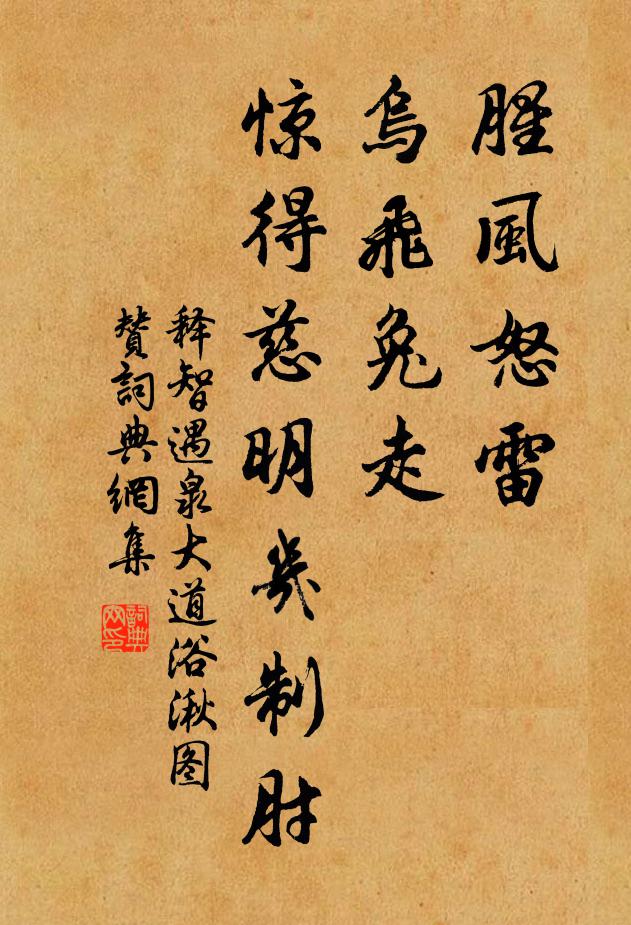 腥風怒雷
烏飛兔走
惊得慈明几制肘
释智遇泉大道浴湫图
赞詞典網集
詞典网印